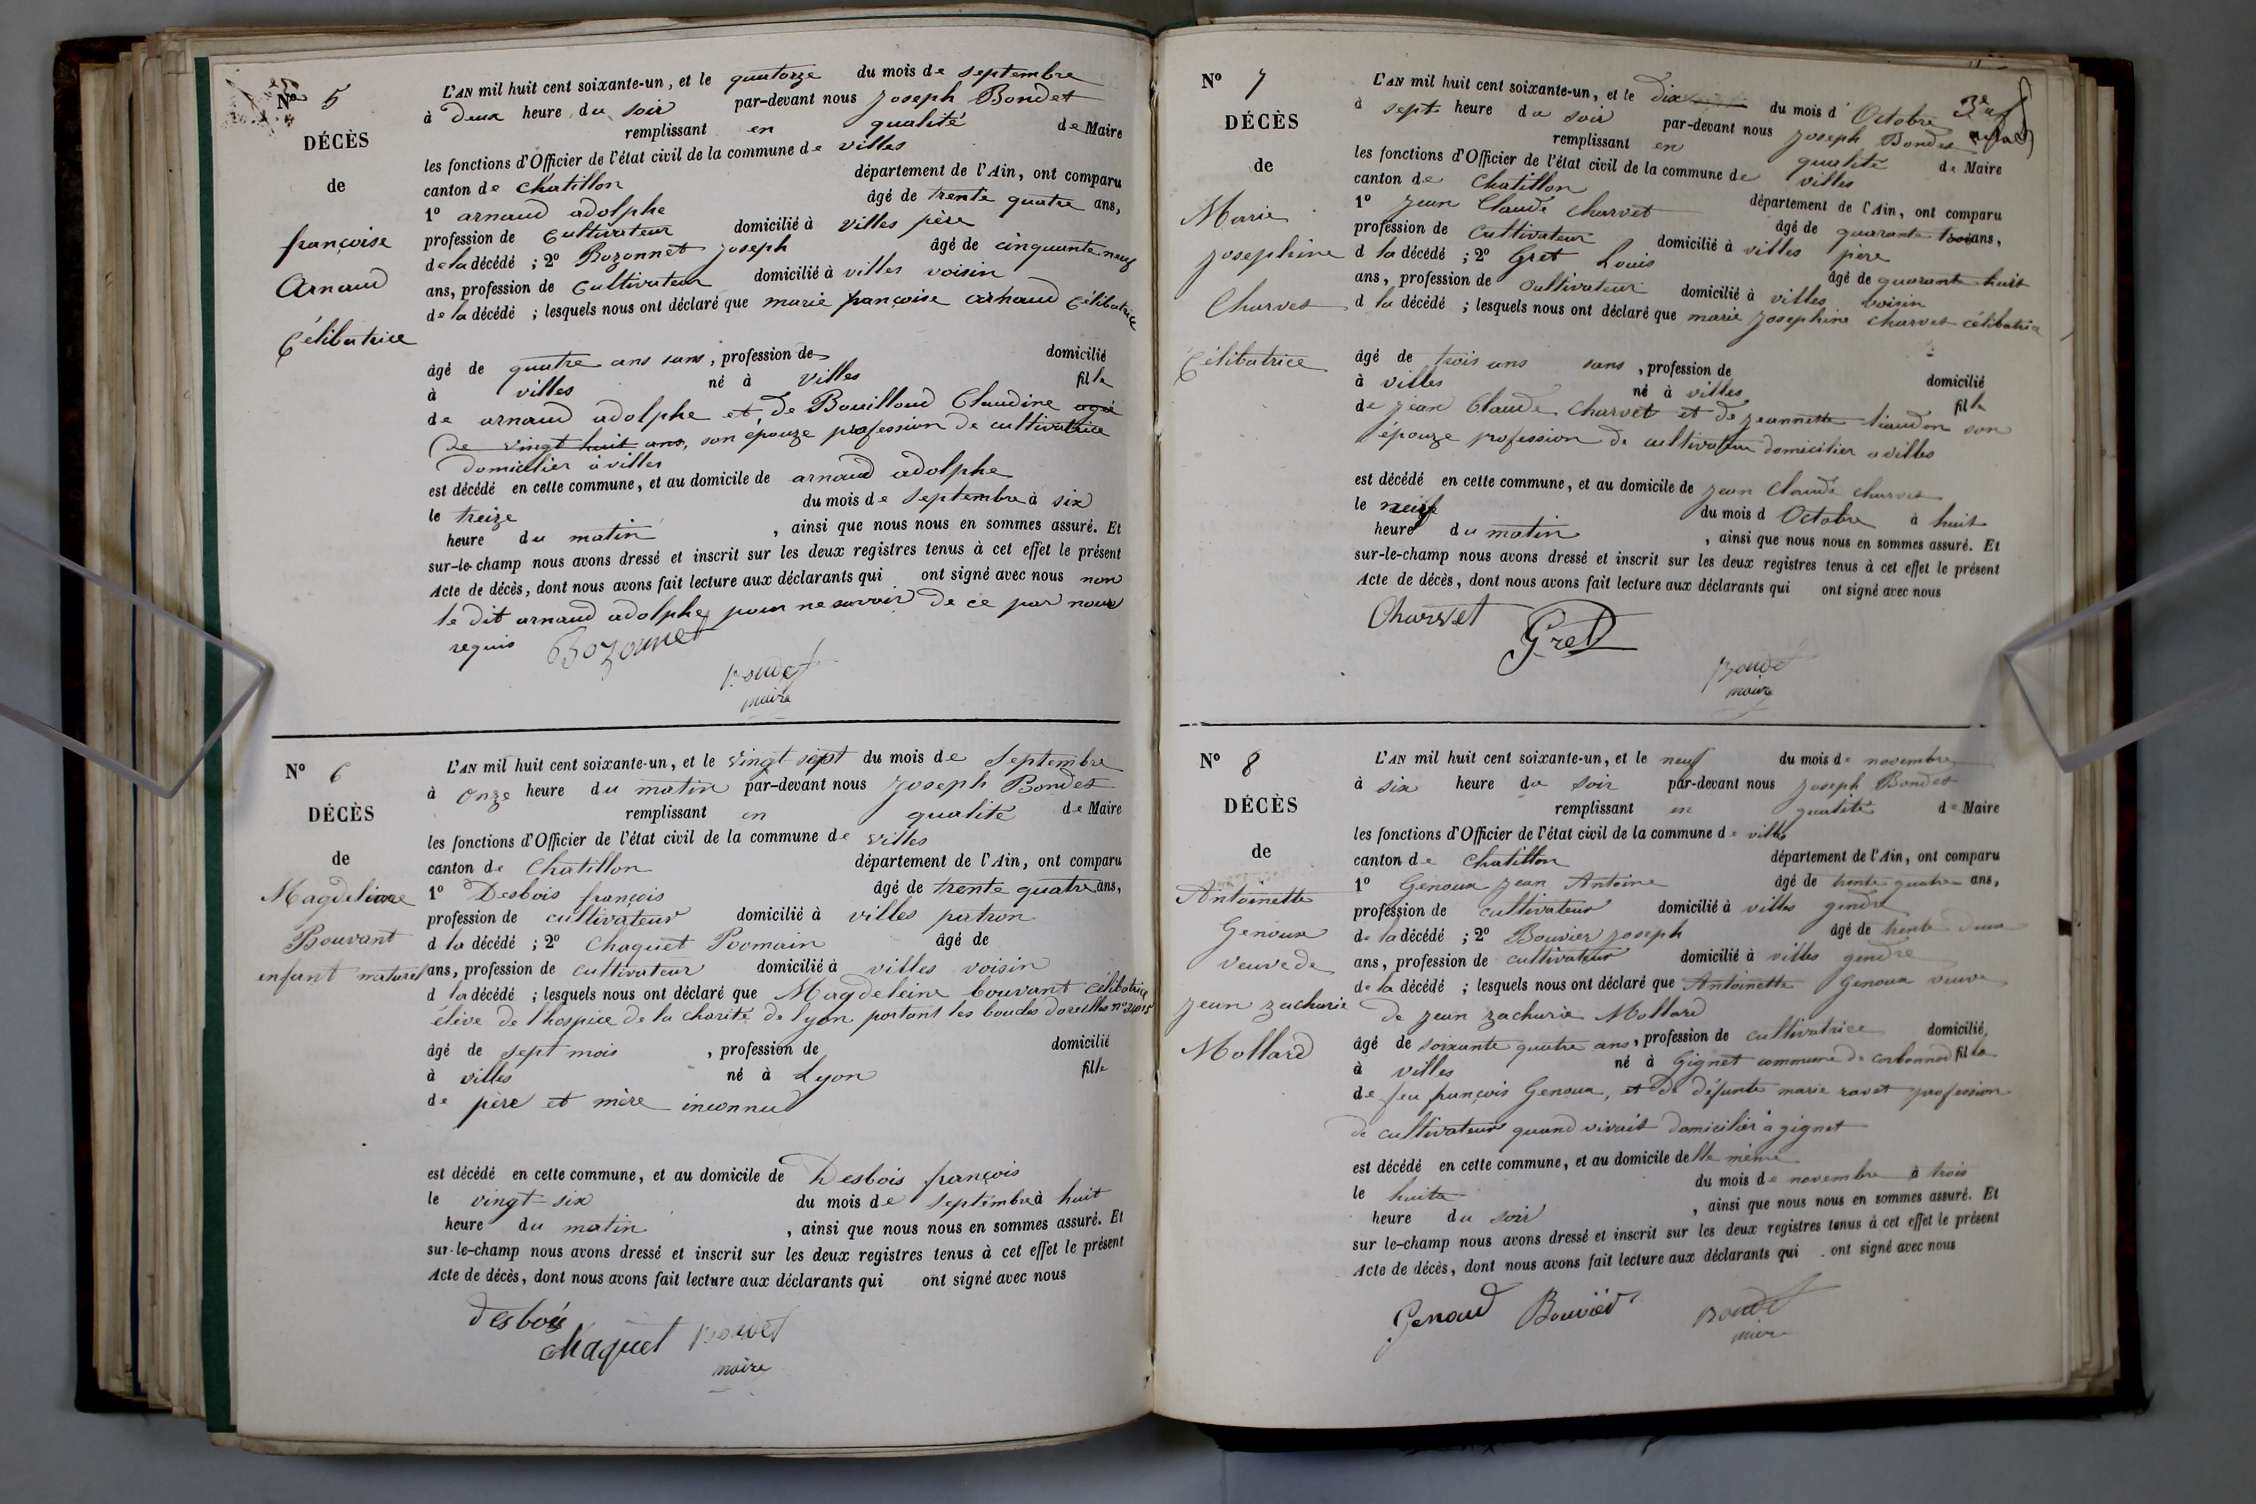 Nº 5
DÉCÈS
de
françoise
Arnaud
Célibatrice
L'AN mil huit cent soixante-un, et le quatorze du mois de septembre
à Deux heure du soir par-devant nous Joseph Bondet
remplissant en qualité de Maire
les fonctions d'Officier de l'état civil de la commune de villes
canton de Chatillon département de l'Ain, ont comparu
1º arnaud adolphe âgé de trente quatre ans,
profession de Cultivateur domicilié à villes père
de la décédé ; 2º Bozonnet joseph âgé de cinquante neuf
ans, profession de Cultivateur domicilié à villes voisin
de la décédé ; lesquels nous ont déclaré que marie françoise arnaud Célibatrice
âgé de quatre ans sans, profession de domicilié
à villes né à Villes fille
de arnaud adolphe et de Bouilloud Claudine agée
de vingt huit ans, son épouze profession de cultivatrice
domicilier à villes
est décédé en cette commune, et au domicile de arnaud adolphe
le treize du mois de septembre à six
heure du matin, ainsi que nous nous en sommes assuré. Et
sur-le-champ nous avons dressé et inscrit sur les deux registres tenus à cet effet le présent
Acte de décès, dont nous avons fait lecture aux déclarants qui ont signé avec nous non
le dit arnaud adolphe pour ne savoir de ce par nous
requis Bozonnet
Bondet
maire
Nº 6
DÉCÈS
de
Magdeleine
Bouvant
enfant naturel
L'AN mil huit cent soixante-un, et le vingt sept du mois de Septembre
à onze heure du matin par-devant nous Joseph Bondet
remplissant en qualité de Maire
les fonctions d'Officier de l'état civil de la commune de villes
canton de Chatillon département de l'Ain, ont comparu
1º Desbois françois âgé de trente quatre ans,
profession de cultivateur domicilié à villes patron
d la décédé ; 2º Chaquet Romain âgé de
ans, profession de cultivateur domicilié à villes voisin
d la décédé ; lesquels nous ont déclaré que Magdeleine bouvant Célibatrice
élève de l'hospice de la charité de lyon portant les boucles doreilles nº
âgé de sept mois, profession de domicilié
à villes né à Lyon fille
de père et mère inconnu
est décédé en cette commune, et au domicile de Desbois françois
le vingt-six du mois de septembre à huit
heure du matin, ainsi que nous nous en sommes assuré. Et
sur-le-champ nous avons dressé et inscrit sur les deux registres tenus à cet effet le présent
Acte de décès, dont nous avons fait lecture aux déclarants qui ont signé avec nous
desbois
chaquet Bondet
maire
Nº 7
DÉCÈS
de
Marie
Josephine
Charvet
Célibatrice
L'AN mil huit cent soixante-un, et le dix du mois d'Octobre
à sept heure du soir par-devant nous Joseph Bondet
remplissant en qualité de Maire
les fonctions d'Officier de l'état civil de la commune de villes
canton de Chatillon département de l'Ain, ont comparu
1º Jean Claude charvet âgé de quarante trois ans,
profession de Cultivateur domicilié à villes père
d la décédé ; 2º Gret Louis âgé de quarante huit
ans, profession de Cultivateur domicilié à villes voisin
d la décédé ; lesquels nous ont déclaré que marie Josephine charvet célibatrice
âgé de trois ans sans, profession de domicilié
à villes né à villes fille
de jean Claude Charvet et de jeannette liaudon son
épouze profession de cultivateur domicilier a villes
est décédé en cette commune, et au domicile de jean Claude charvet
le neuf du mois d Octobre à huit
heure du matin, ainsi que nous nous en sommes assuré. Et
sur-le-champ nous avons dressé et inscrit sur les deux registres tenus à cet effet le présent
Acte de décès, dont nous avons fait lecture aux déclarants qui ont signé avec nous
Charvet
Gret
Bondet
maire
Nº 8
DÉCÈS
de
Antoinette
Genoux
veuve de
jean zacharie
Mollard
L'AN mil huit cent soixante-un, et le neuf du mois de novembre
à six heure du soir par-devant nous Joseph Bondet
remplissant en qualité de Maire
les fonctions d'Officier de l'état civil de la commune de villes
canton de Chatillon département de l'Ain, ont comparu
1º Genoux jean Antoine âgé de trente quatre ans,
profession de cultivateur domicilié à villes gendre
de la décédé ; 2º Bouvier joseph âgé de trente deux
ans, profession de cultivateur domicilié à villes gendre
de la décédé ; lesquels nous ont déclaré que Antoinette Genoux veuve
de jean zacharie Mollard
âgé de soixante quatre ans, profession de cultivatrice domicilié
à villes né à Gignet commune de corbonnod fille
de feu françois Genoux, et de défunte marie ravet profession
de cultivateur quand vivait domicilier à gignet
est décédé en cette commune, et au domicile de lle même
le huite du mois de novembre à trois
heure du soir, ainsi que nous nous en sommes assuré. Et
sur le-champ nous avons dressé et inscrit sur les deux registres tenus à cet effet le présent
Acte de décès, dont nous avons fait lecture aux déclarants qui ont signé avec nous
Genoud Bouvier Bondet
maire